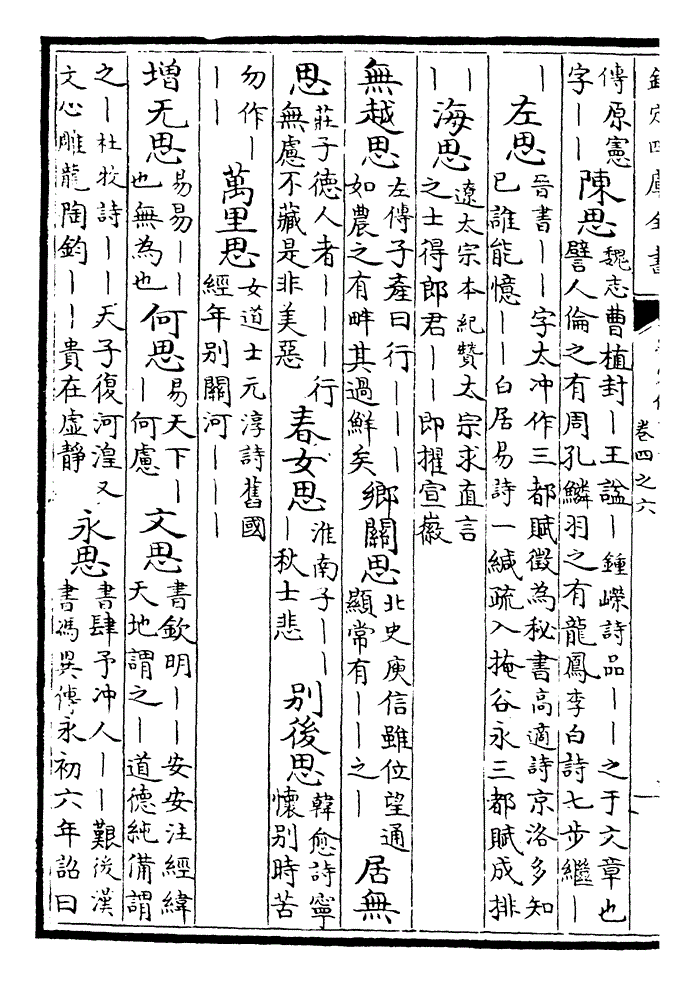 欽定四庫全書
卷四之六
傳原憲
字丨丨
陳思
魏志曹植封丨王諡丨鍾嶸詩品丨丨之于文章也
譬人倫之有周孔鱗羽之有龍鳳李白詩七步繼丨
丨
左思
晉書丨丨字太冲作三都賦徵為秘書高適詩京洛多知
已誰能憶丨丨白居易詩一緘疏入掩谷永三都賦成排
丨
丨
海思
遼太宗本紀贊太宗求直言
之士得郎君丨丨即擢宣徽
無越思
左傳子產曰行丨丨丨
如農之有畔其過鮮矣
鄉關思
北史庾信雖位望通
顯常有丨丨之丨
居無
思
莊子德人者丨丨丨行
無慮不藏是非美惡
春女思
淮南子丨丨
丨秋士悲
别後思
韓愈詩寧
懷别時苦
勿作丨
丨丨
萬里思
女道士元淳詩舊國
經年别關河丨丨丨
增无思
易易丨丨
也無為也
何思
易天下丨
丨何慮
文思
書欽明丨丨安安注經緯
天地謂之丨道德純備謂
之丨杜牧詩丨丨天子復河湟又
文心雕龍陶鈞丨丨貴在虚靜
永思
書肆予冲人丨丨艱後漢
書馮異傳永初六年詔曰